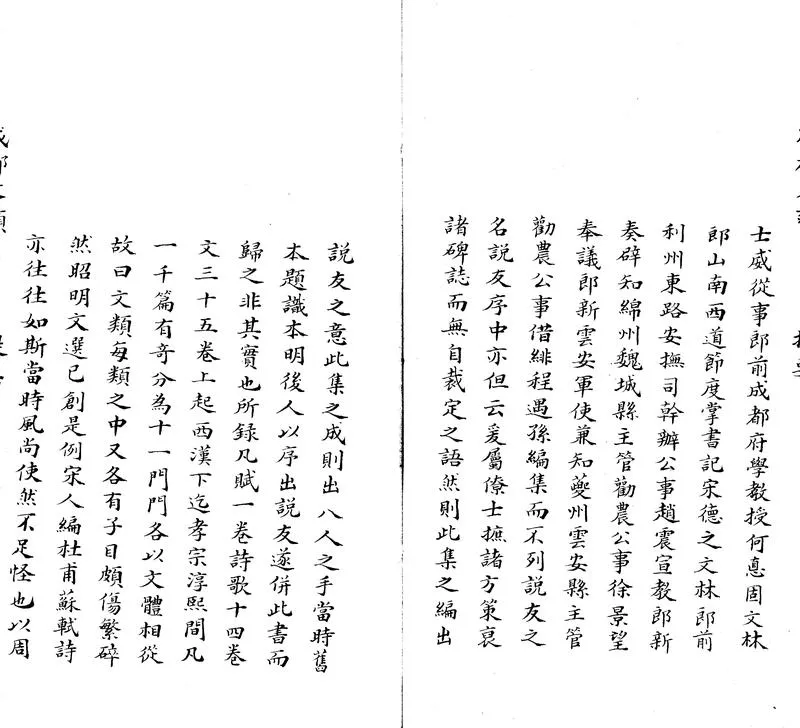 士威從事郎前成都府學教授何悳固文林
郎山南西道節度掌書記宋德之文林郎前
利州東路安撫司幹辦公事趙震宣教郎新
奏辟知綿州魏城縣主管勸農公事徐景望
奉議郎新雲安軍使兼知夔州雲安縣主管
勸農公事借緋程遇孫編集而不列說友之
名說友序中亦但云爰屬僚士摭諸方策裒
諸碑誌而無自裁定之語然則此集之編出
說友之意此集之成則出八人之手當時舊
本題識本明後人以序出説友遂併此書而
歸之非其實也所録凡賦一卷詩歌十四卷
文三十五卷上起西漢下迄孝宗淳熙間凡
一千篇有奇分為十一門門各以文體相從
故曰文類每類之中又各有子目頗傷繁碎
然昭明文選已創是例宋人編杜甫蘇軾詩
亦往往如斯當時風尚使然不足怪也以周